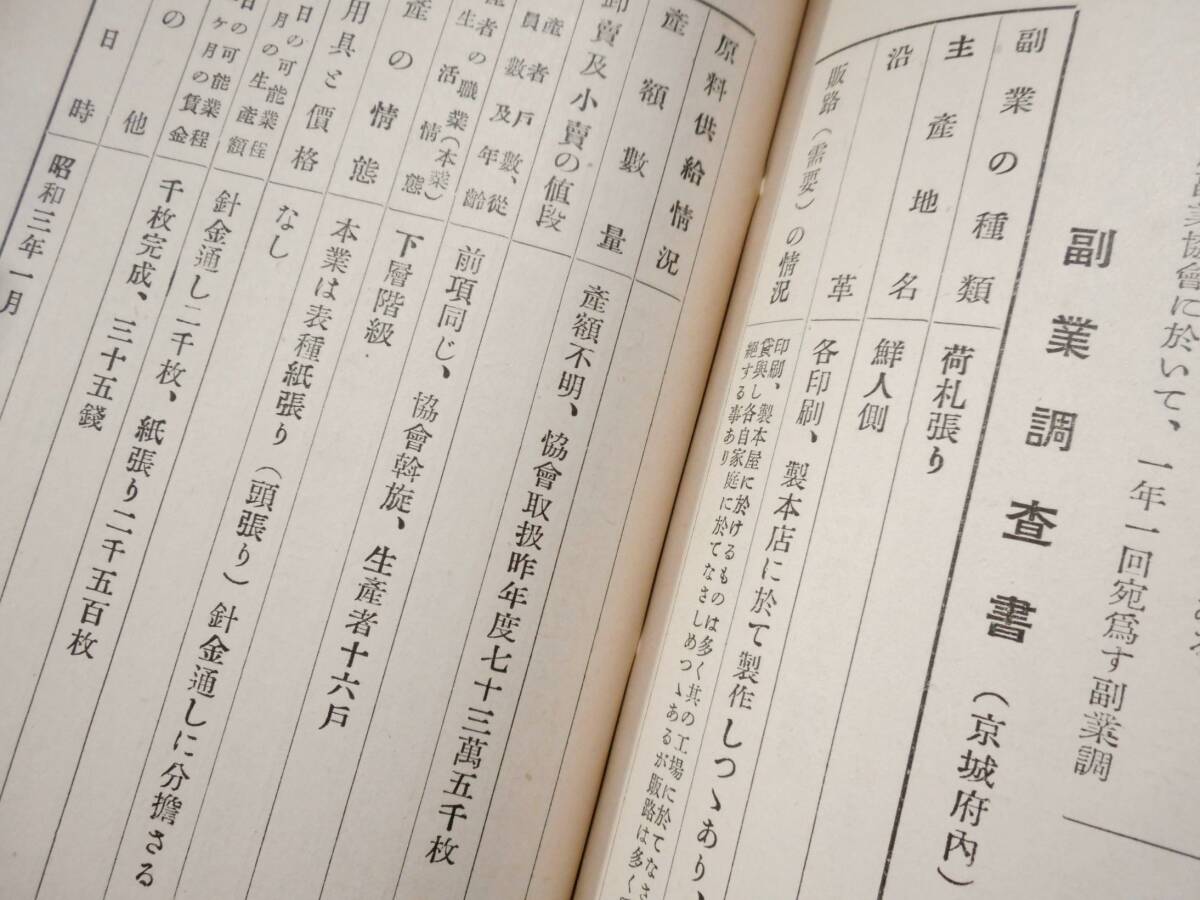 業協會に於いて、一年一回宛爲す副業調
副業調査書（京城府內）
副業の種類
荷札張り
主產地名
鮮人側
沿革
各印刷、製本店に於て製作しつゝあり、
販路（需要）の情況
印刷、製本屋に於けるものは多く其の工場に於てなさ
貸與し各自家庭に於てなさしめつゝあるが販路は多く
絕する事あり
原料供給情況
產額數量
產額不明、協會取扱昨年度七十三萬五千枚
卸賣及小賣の値段
產者戶數、從
員數及年齡
前項同じ、協會斡旋、生產者十六戶
產者の職業（本業）
生活情態
下層階級
產の情態
本業は表種紙張り（頭張り）針金通しに分擔さる
用具と價格
なし
日の可能業程
月の生產額
針金通し二千枚、紙張り二千五百枚
日の可能業程
ケ月の賃金
千枚完成、三十五錢
の他
日時
昭和三年一月